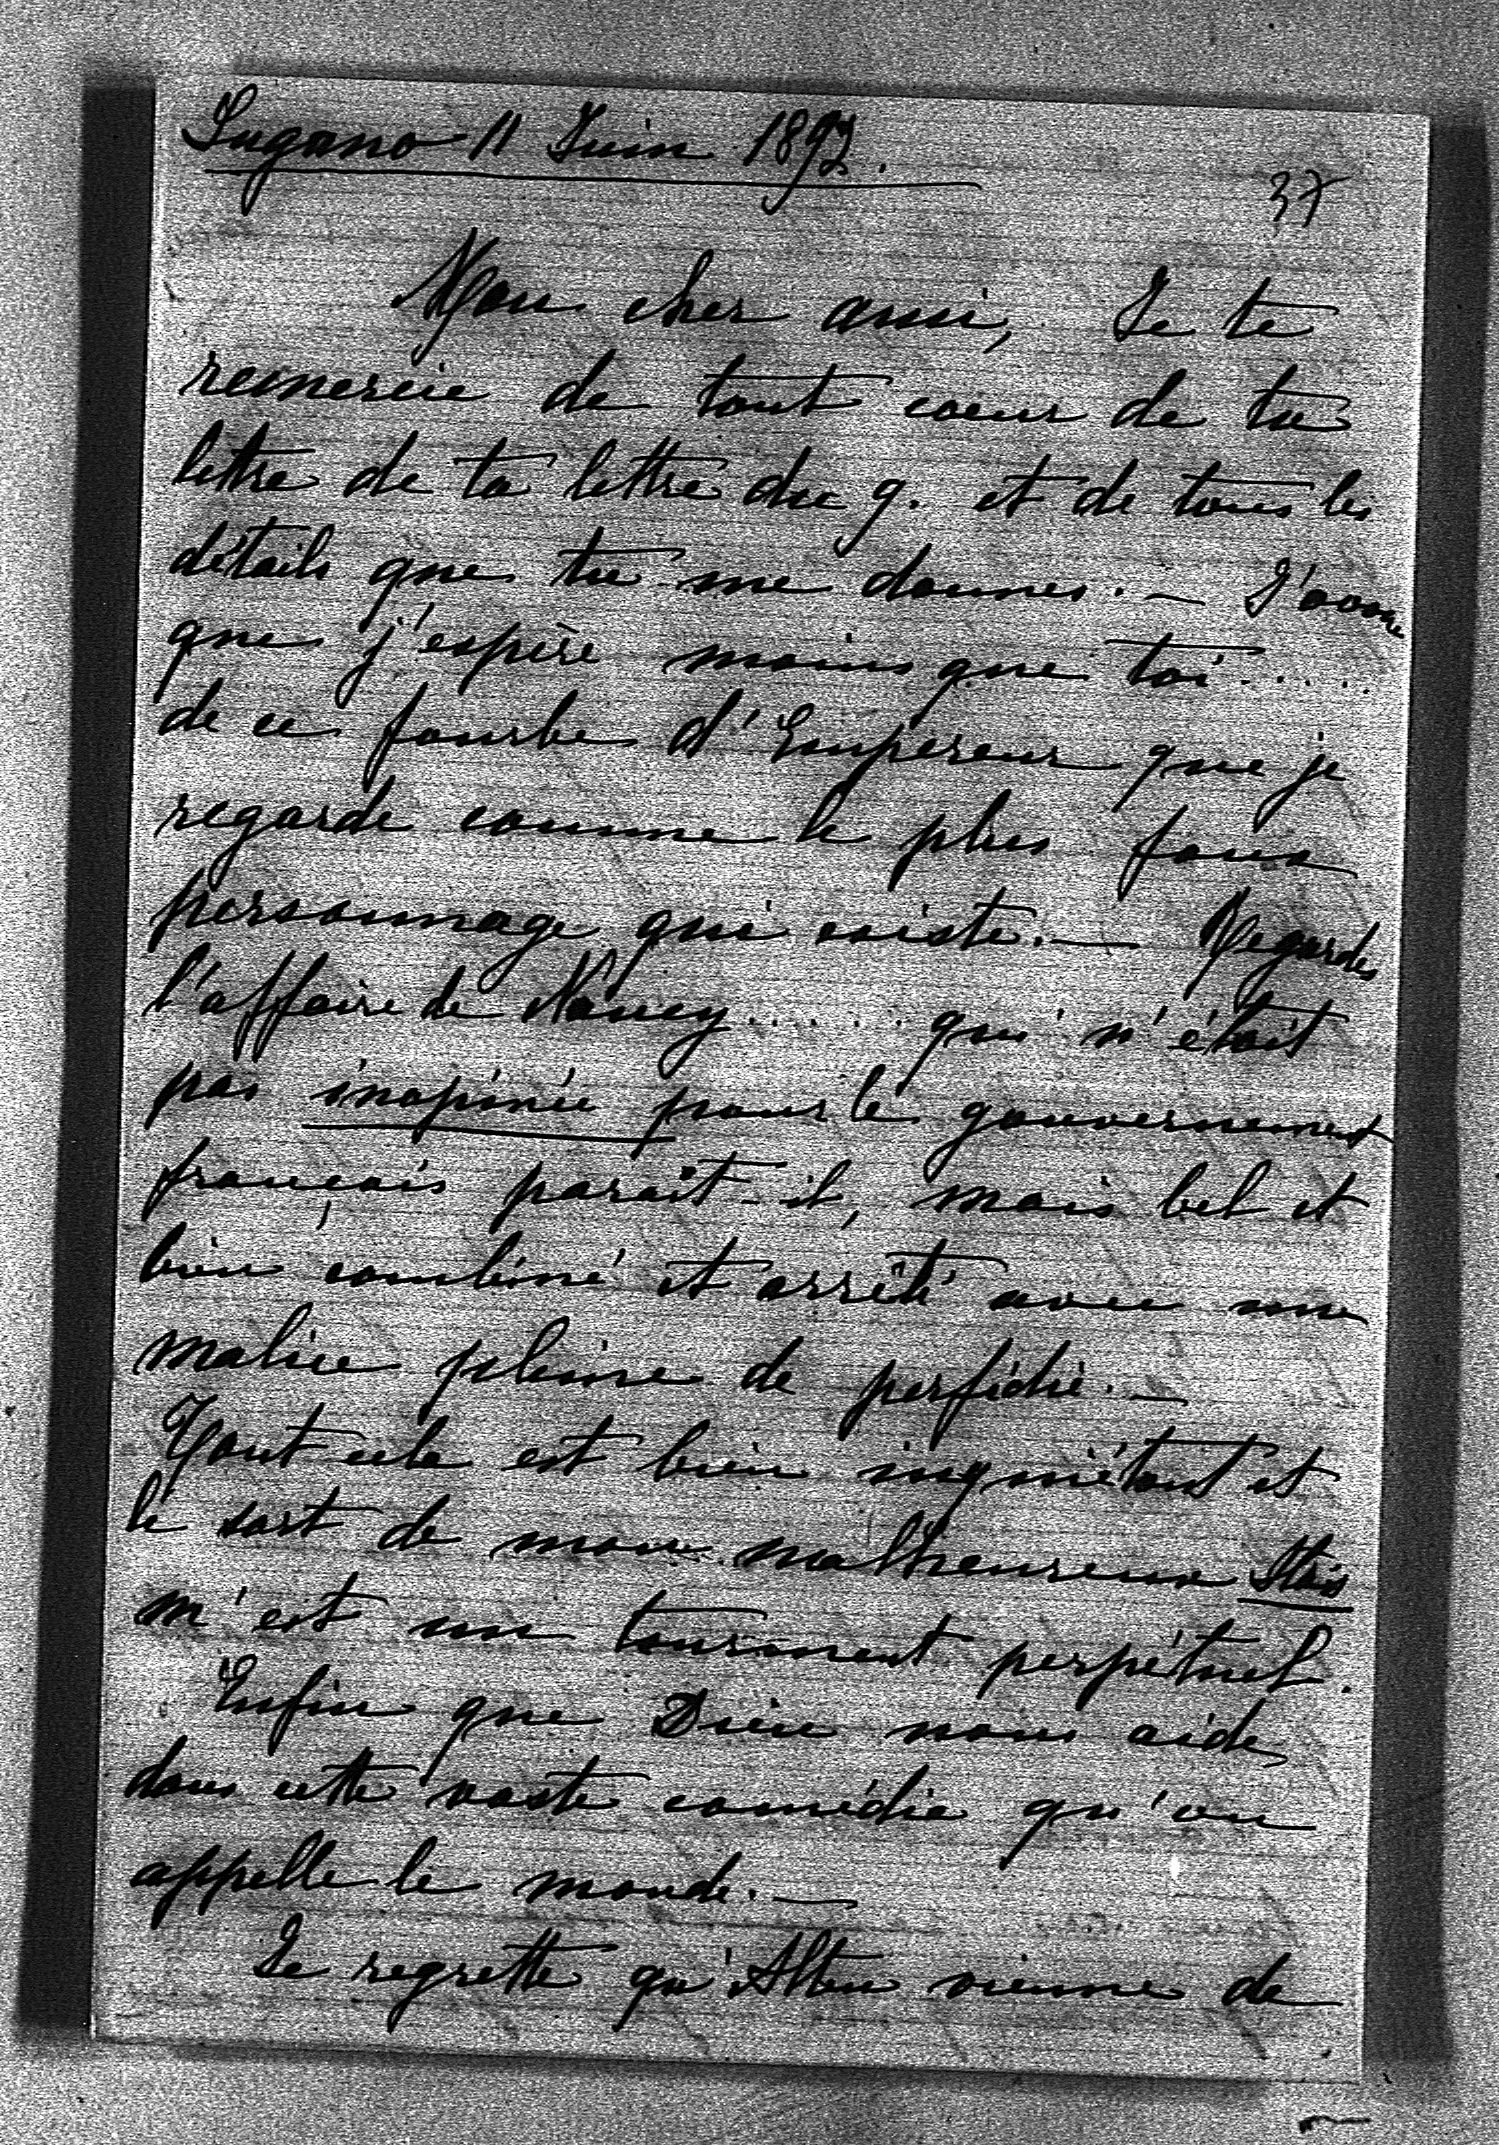 Lugano 11 Juin 1892.
37
Mon cher ami, Je te
remercie de tout coeur de ta
lettre de ta lettre du 9. et de tous les
détails que tu me donnes. — J'avoue
que j'espère moins que toi .....
de ce fourbe d'Empereur que je
regarde comme le plus faux
personnage qui existe. — Regardes
l'affaire de Nancy ...... qui n'était
pas inopinée pour le gouvernement
français parait-il, mais bel et
bien combiné et arrêté avec une
malice pleine de perfidie. —
Tout cela est bien inquiétant et
le sort de mon malheureux
m'est un tourment perpétuel.
Enfin que Dieu nous aide
dans cette vaste comédie qu'on
appelle le monde. —
Je regrette qu' vienne de